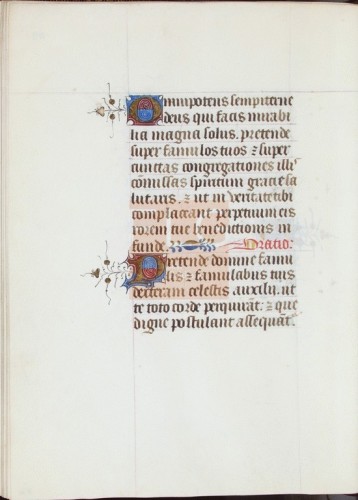 Omnipotens sempiterne
deus qui facis mirabi
lia magna solus. pretende
super famulos tuos ⁊ super
cunctas congregationes illis
comissas spiritum gracie sa
lutaris. ⁊ ut in veritate tibi
complaceant perpetuum eis
rorem tue benedictionis in
funde. Oratio:
Pretende domine famu
lis ⁊ famulabus tuis
dexteram celestis auxilij. ut
te toto corde perquirāt: ⁊ que
digne postulant assequāt.